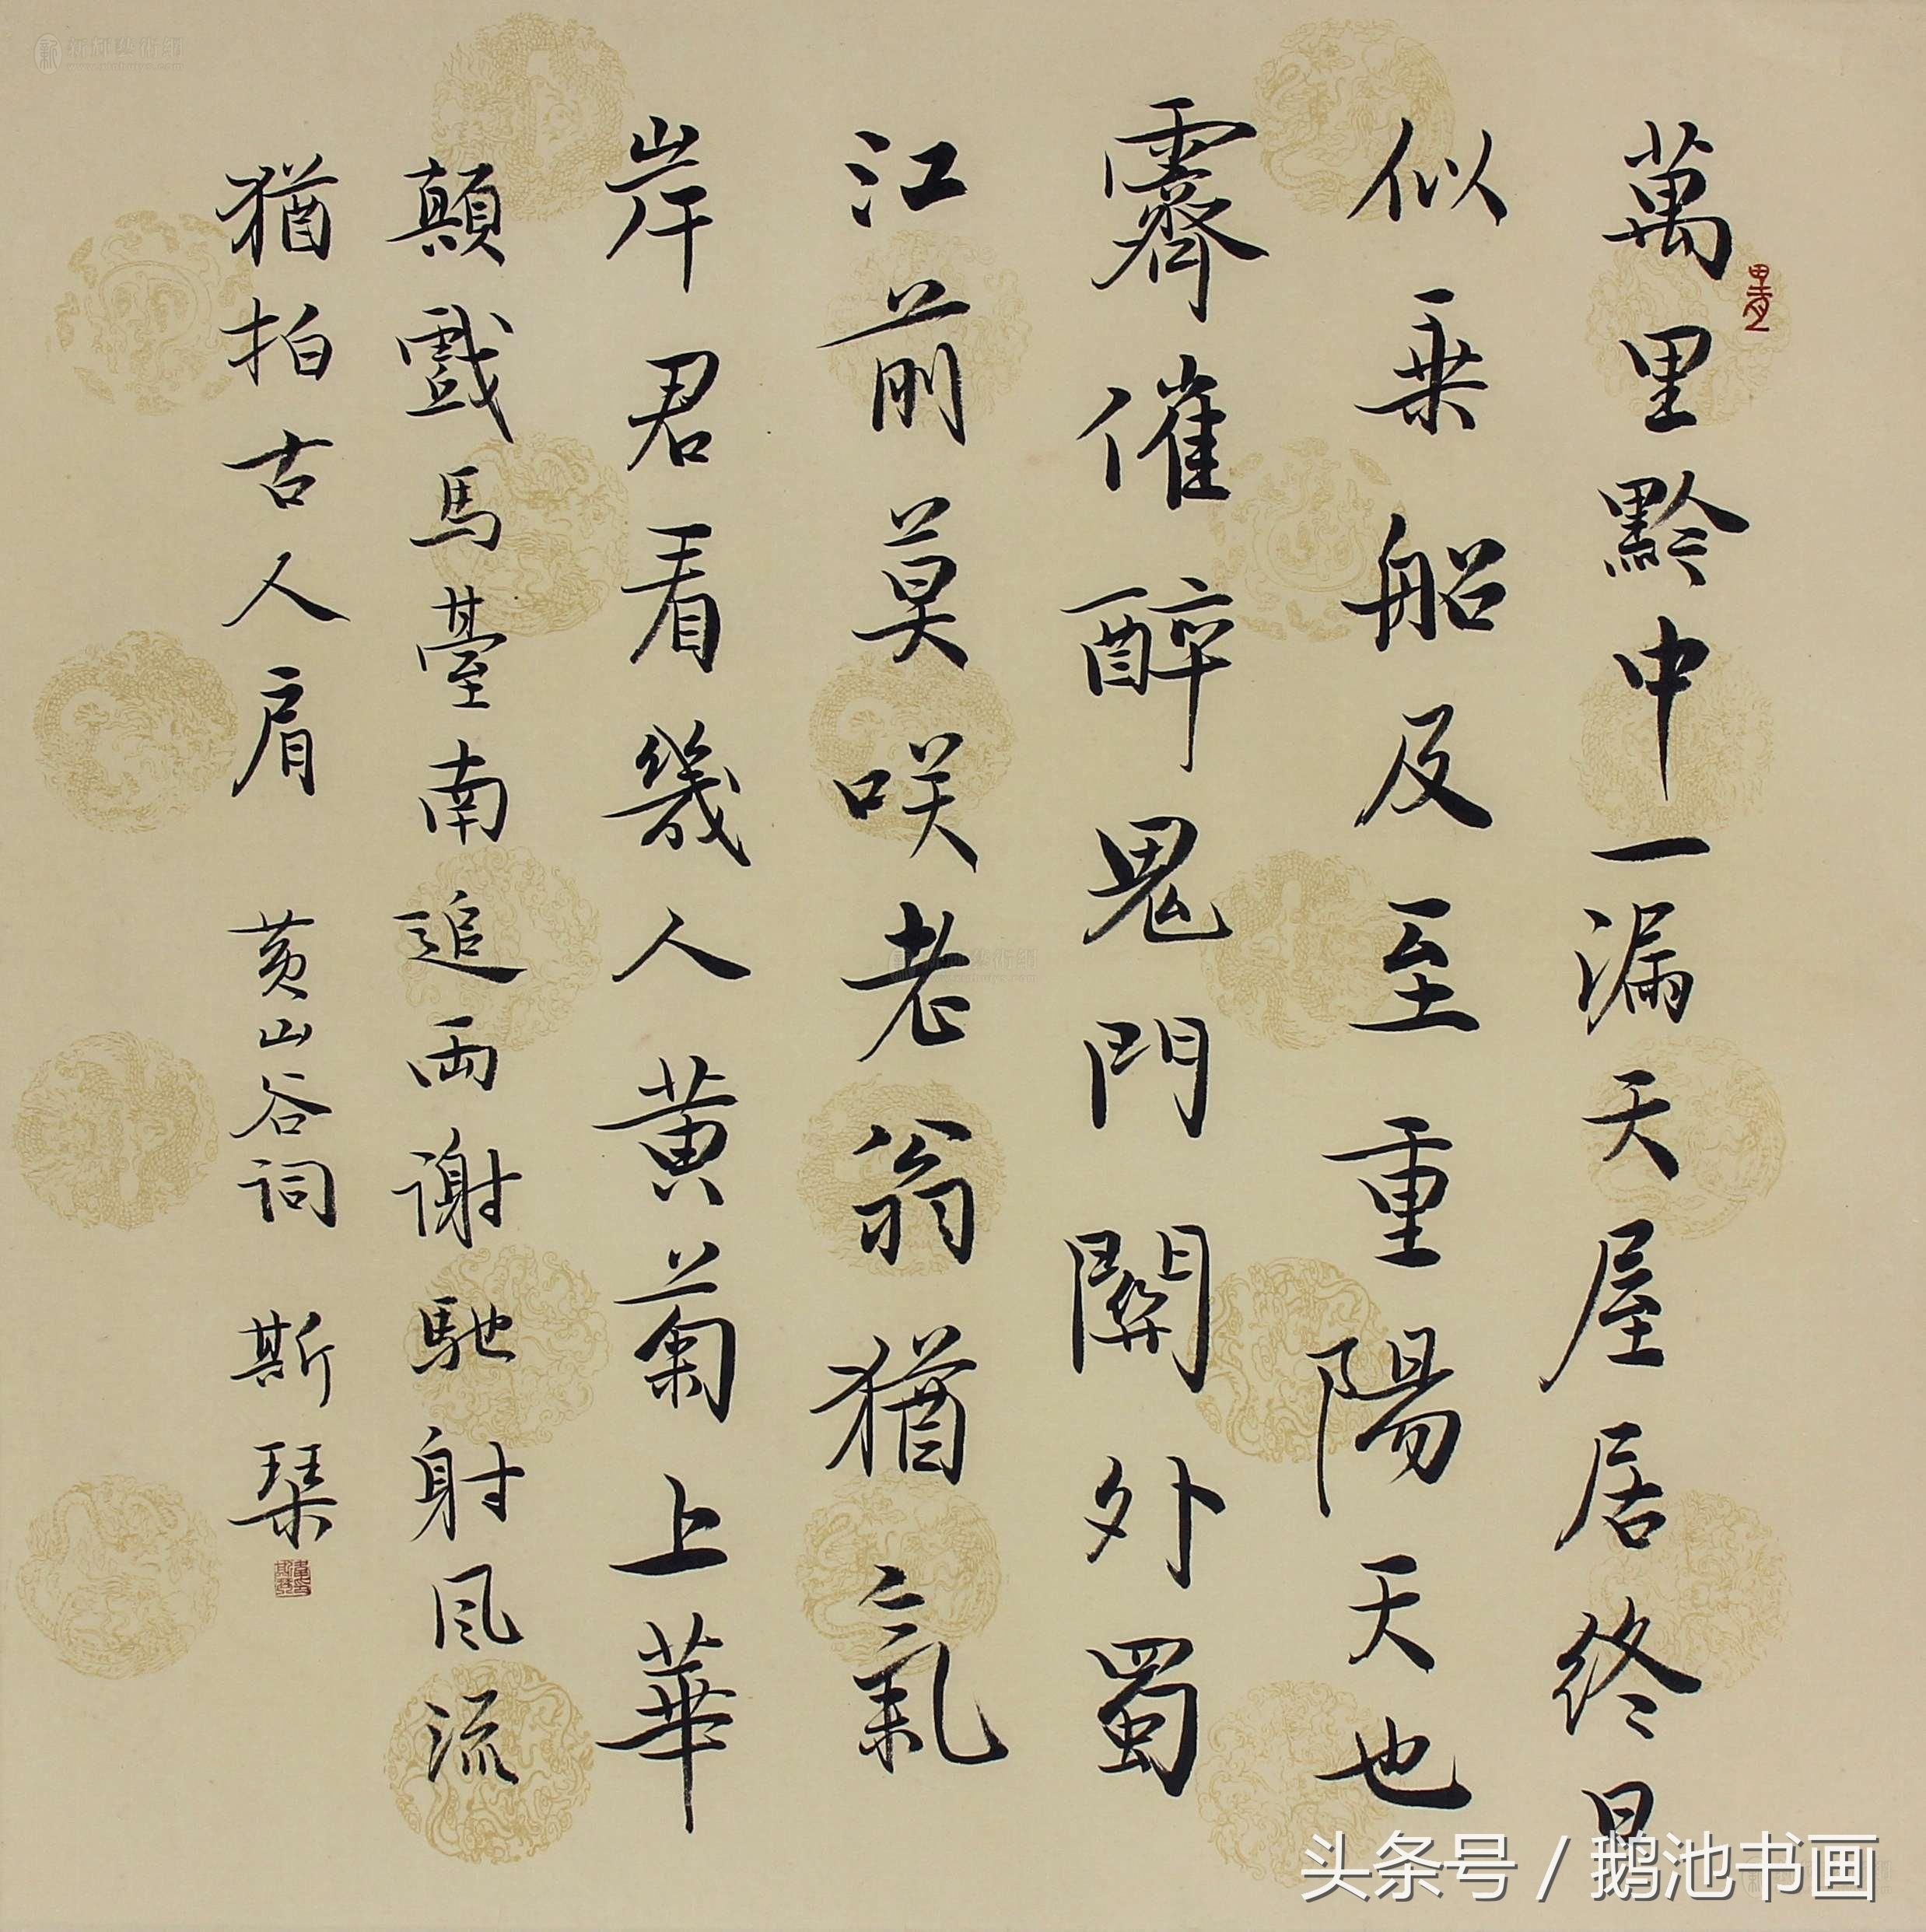 萬里黔中一漏天屋居終日
似乗船及至重陽天也
霽催醉鬼門關外蜀
江前莫咲老翁猶氣
岸君看幾人黄菊上華
顛戲馬臺南追両謝馳射風流
猶拍古人肩 黄山谷詞 斯琹
头条号 / 鹅池书画